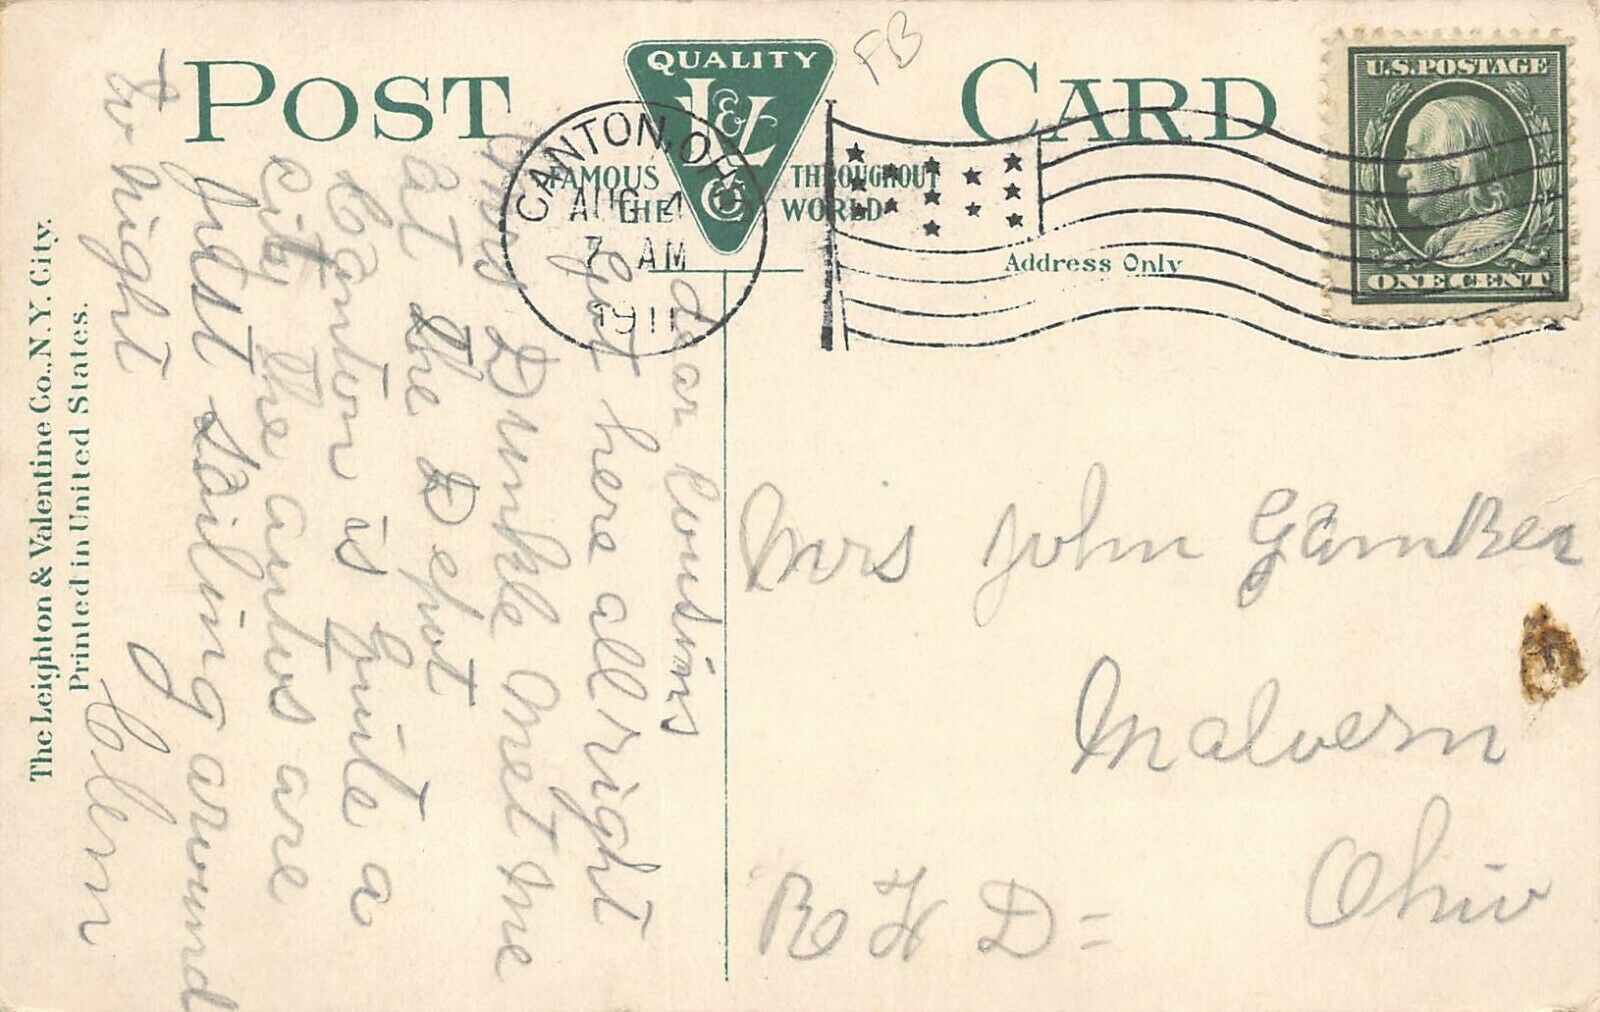 POST CARD
FB
QUALITY
L & V
Co
FAMOUS THROUGHOUT
THE WORLD
CANTON, OHIO
AUG 4
7 AM
1911
U.S. POSTAGE
ONE CENT
Address Only
The Leighton & Valentine Co., N.Y. City.
Printed in United States.
dear Cousins
Got here all right
Dunkle met me
at the Depot
Canton is Quite a
City the autos are
Just sailing around
to night
Clem
Mrs John GamBer
Malvern
Ohio
R F D =